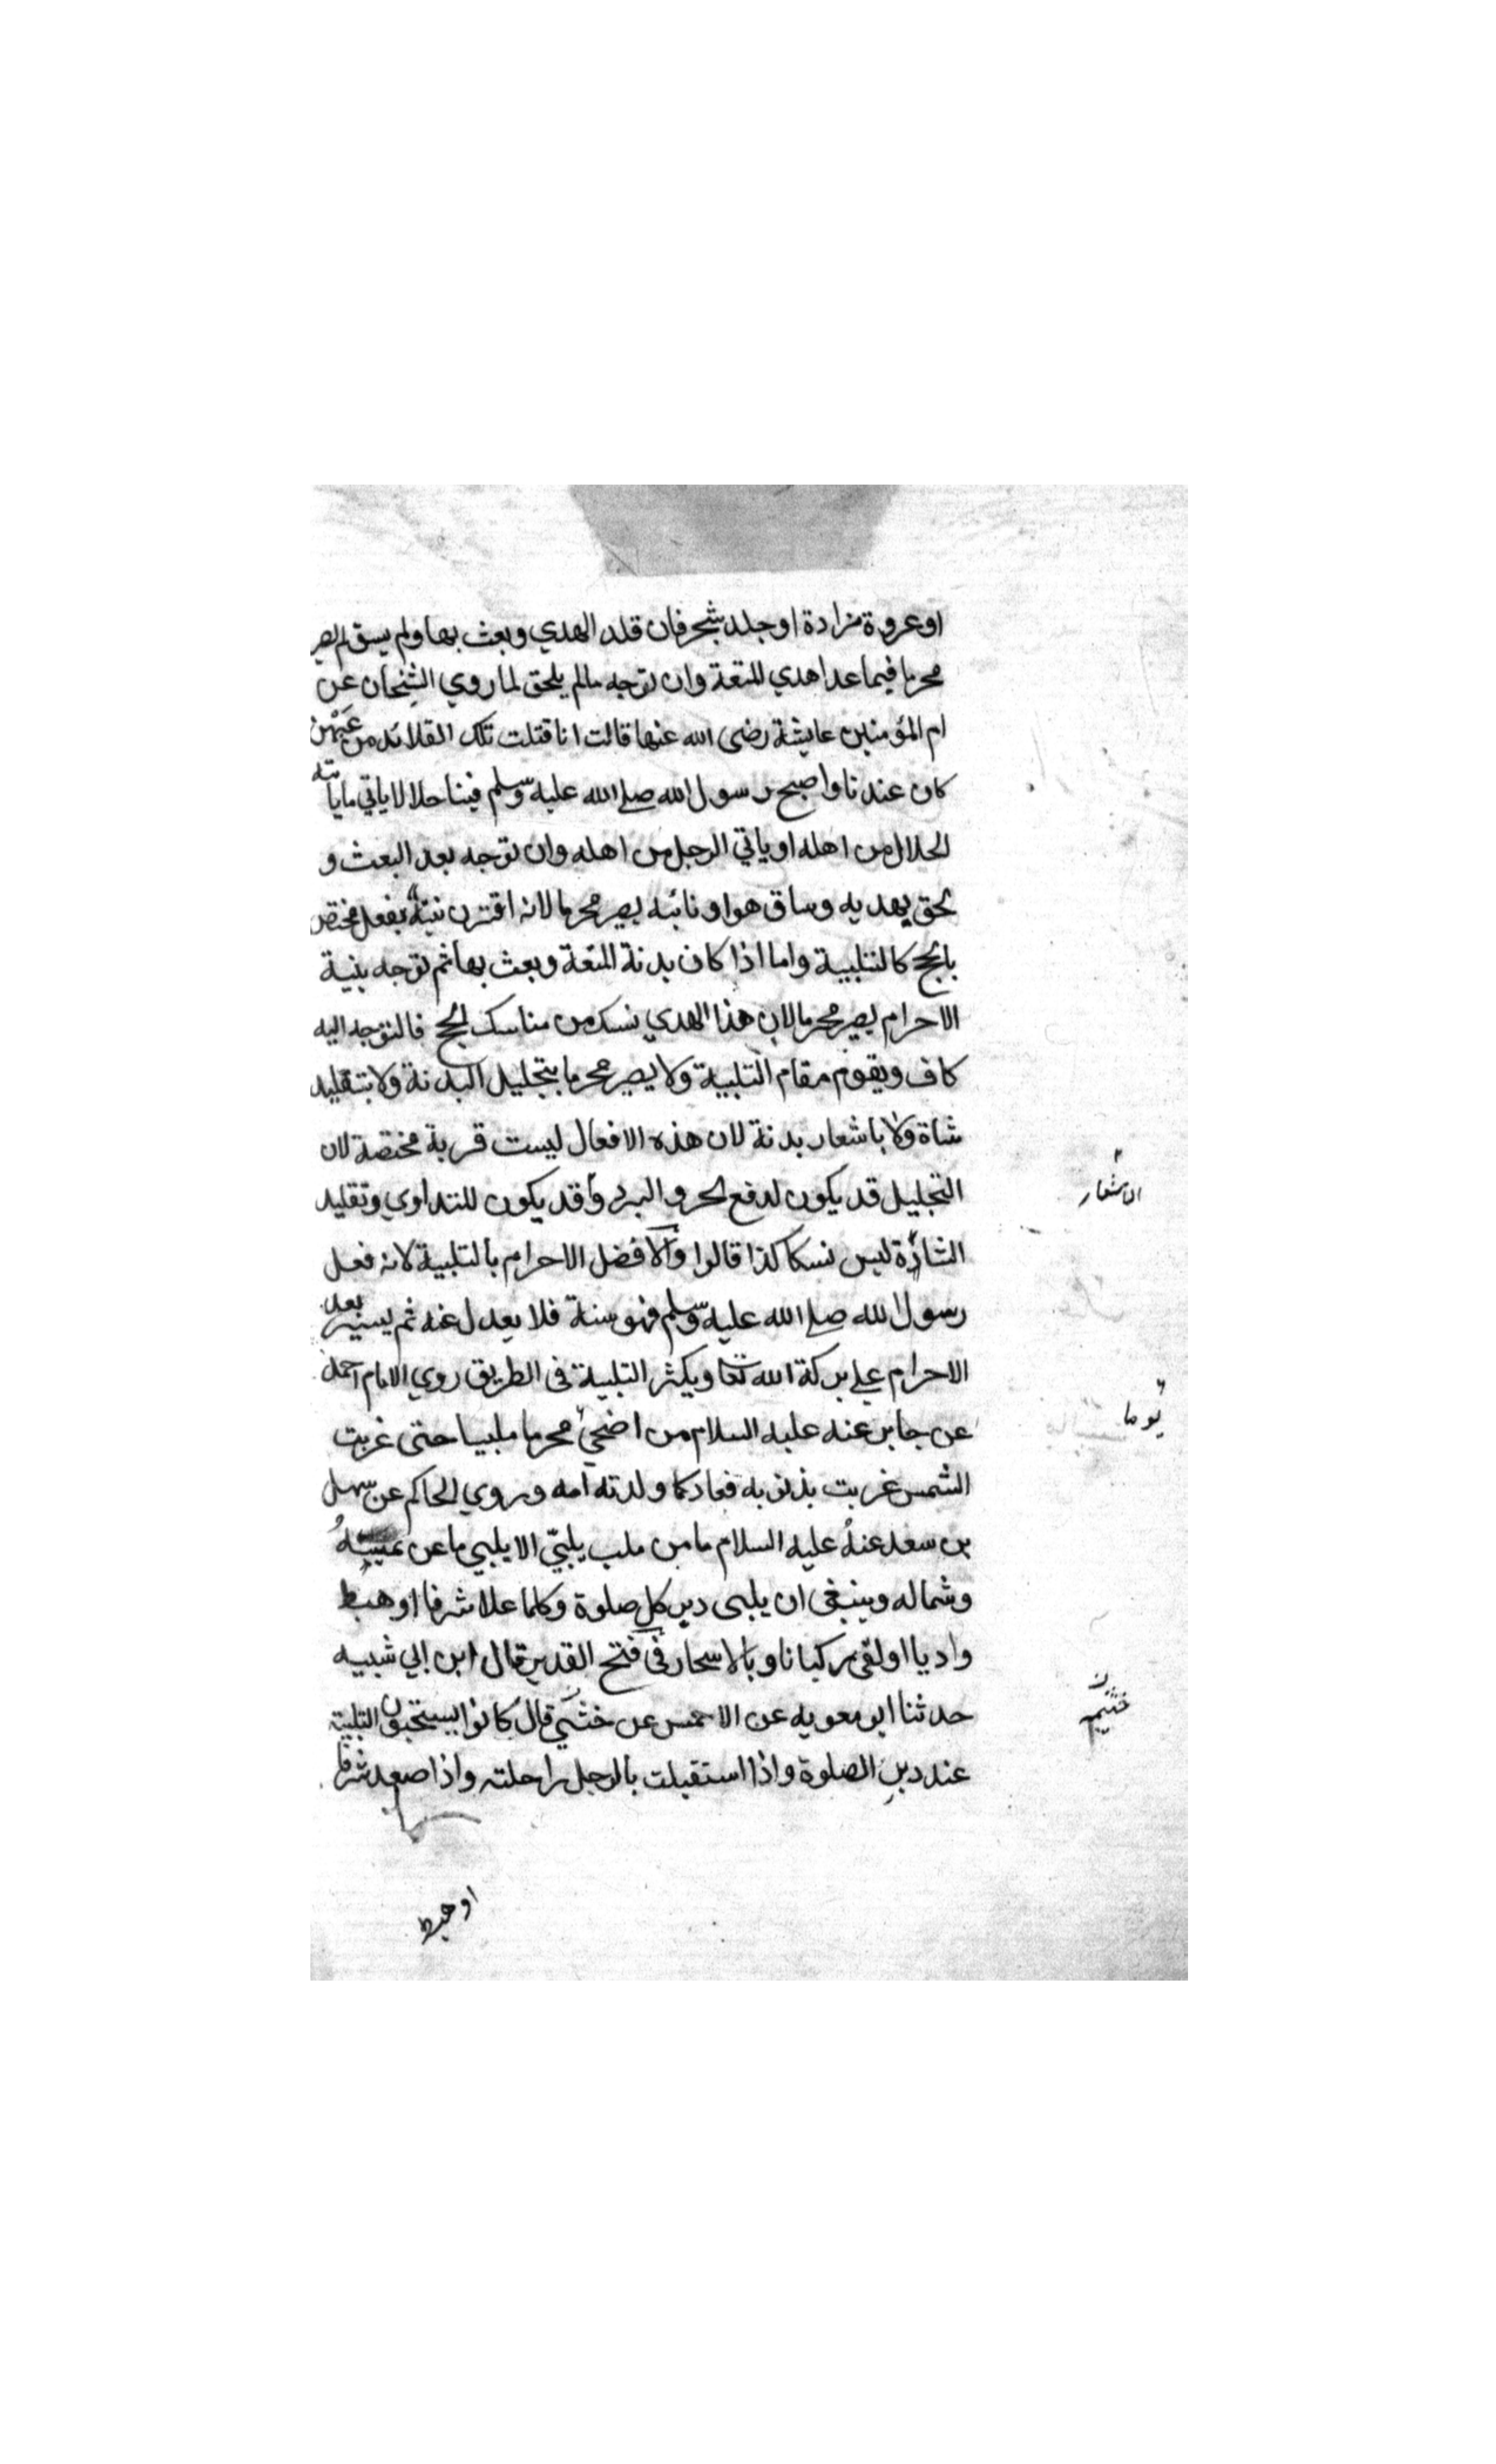 او عروة مزادة او جلد شجر فان قلد الهدي وبعث بها ولم يسق لم يصر
محرما فيما عدا هدي المتعة وان توجه مالم يلحق لما روي الشيخان عن
ام المؤمنين عايشة رضى الله عنها قالت انا قتلت تلك القلائد من عهن
كان عندنا واصبح رسول الله صلى الله عليه وسلم فينا حلالا ياتي ما ياتيه
الحلال من اهله او ياتي الرجل من اهله وان توجه بعد البعث و
لحق بهديه وساق هو او نائبه يصير محرما لانه اقترن نيته بفعل مختص
بالحج كالتلبية واما اذا كان بدنة المتعة وبعث بها ثم توجه بنية
الاحرام يصير محرما لان هذا الهدي نسك من مناسك الحج فالتوجه اليه
كاف ويقوم مقام التلبية ولا يصير محرما بتجليل البدنة ولا بتقليد
شاة ولا باشعار بدنة لان هذه الافعال ليست قربة مختصة لان
التجليل قد يكون لدفع الحر والبرد وقد يكون للتداوي وتقليد
الاشعار
الشاة ليس نسكا كذا قالوا والافضل الاحرام بالتلبية لانه فعل
رسول الله صلى الله عليه وسلم فهو سنة فلا يعدل عنه ثم يسير بعد
الاحرام على بركة الله تعا ويكثر التلبية فى الطريق روي الامام احمد
عن جابر عنه عليه السلام من اضحي محرما ملبيا حتى غربت
يوما
الشمس غربت بذنوبه فعاد كما ولدته امه وروي الحاكم عن سهل
بن سعد عنه عليه السلام ما من ملب يلبي الا يلبي ما عن يمينه
وشماله وينبغى ان يلبى دبر كل صلوة وكلما علا شرفا او هبط
واديا او لقى ركبانا وبالاسحار فى فتح القدير قال ابن ابي شيبه
حدثنا ابو معويه عن الاعمس عن خثمي قال كانوا يستحبون التلبية
خثيم
عند دبر الصلوة واذا استقبلت بالرجل راحلته واذا صعد شرفا
او هبط